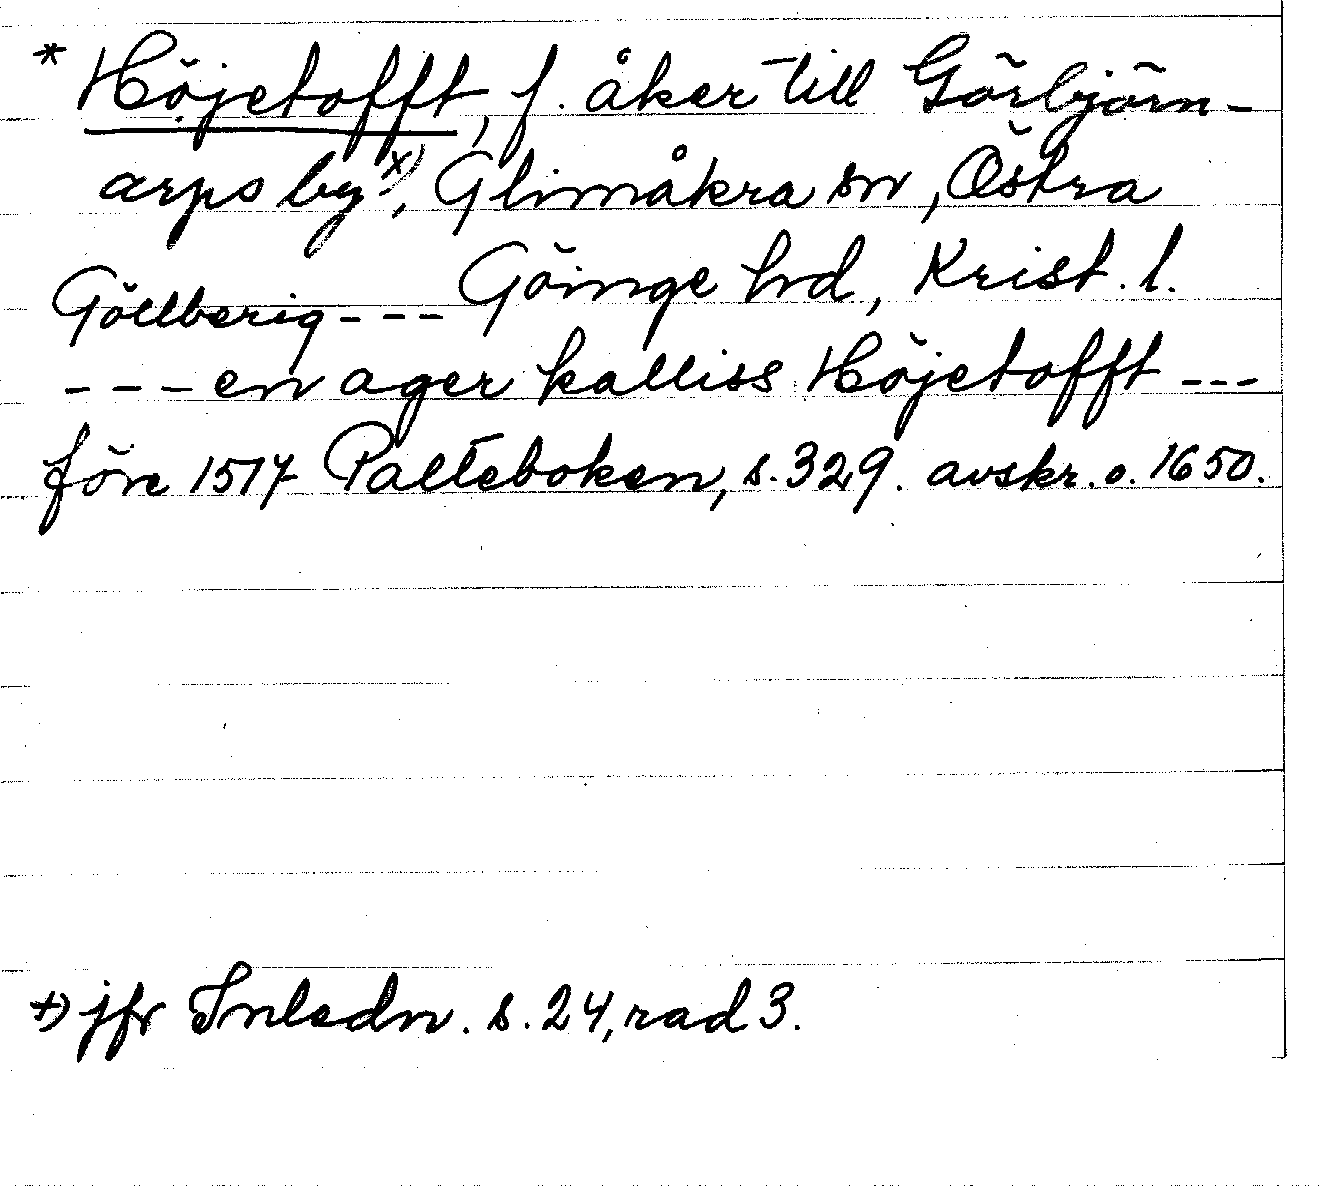 * Höjetofft, f. åker till Görbjörn-
arps by x), Glimåkra sn, Östra
Göinge hd, Krist. l.
Göllberig - - -
- - - en ager kalliss Höjetofft - - -
före 1517 Palteboken, s. 329. avskr. o. 1650.
x) jfr Inledn. s. 24, rad 3.